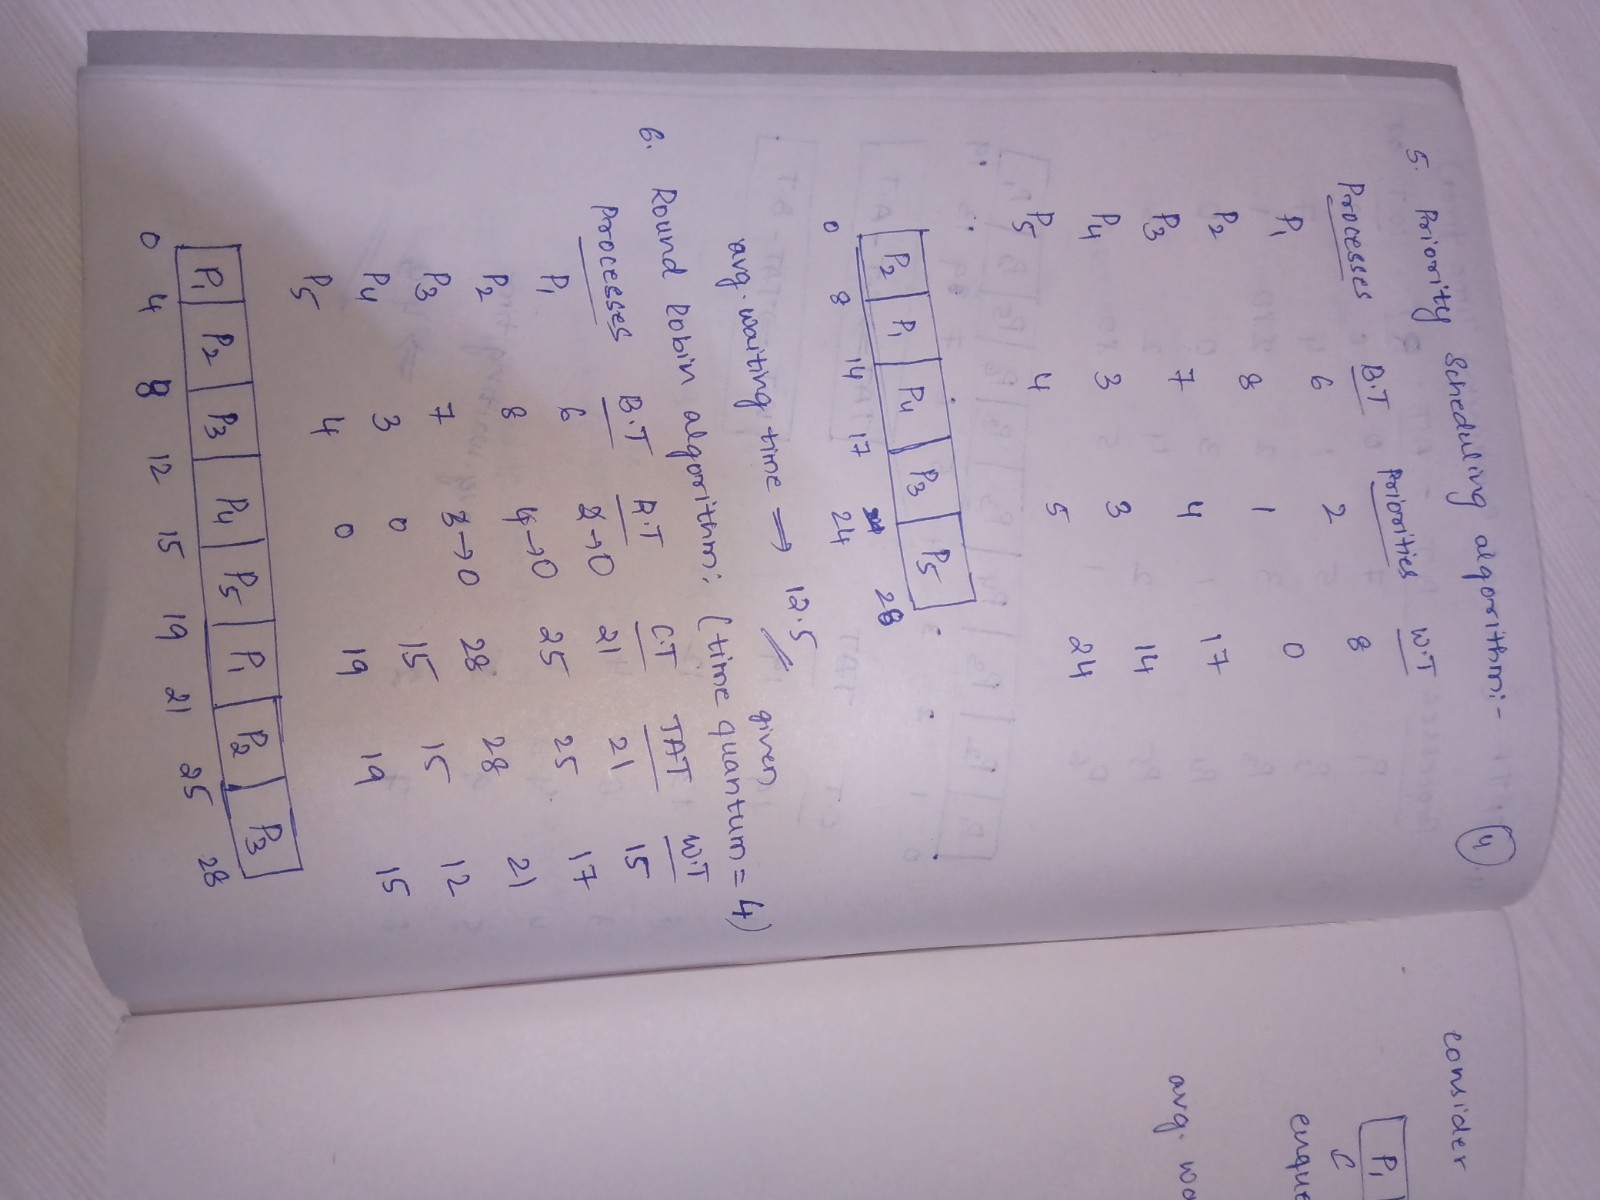 4
5. Priority scheduling algorithm:-
Processes B.T Priorities W.T
P1 6 2 8
P2 8 1 0
P3 7 4 17
P4 3 3 14
P5 4 5 24
P2 P1 P4 P3 P5
0 8 14 17 24 28
avg. waiting time ⇒ 12.5
given
6. Round Robin algorithm: (time quantum = 4)
Processes B.T R.T C.T TAT W.T
P1 6 2→0 21 21 15
P2 8 4→0 25 25 17
P3 7 3→0 28 28 21
P4 3 0 15 15 12
P5 4 0 19 19 15
P1 P2 P3 P4 P5 P1 P2 P3
0 4 8 12 15 19 21 25 28
consider
P1
enque
avg. wa